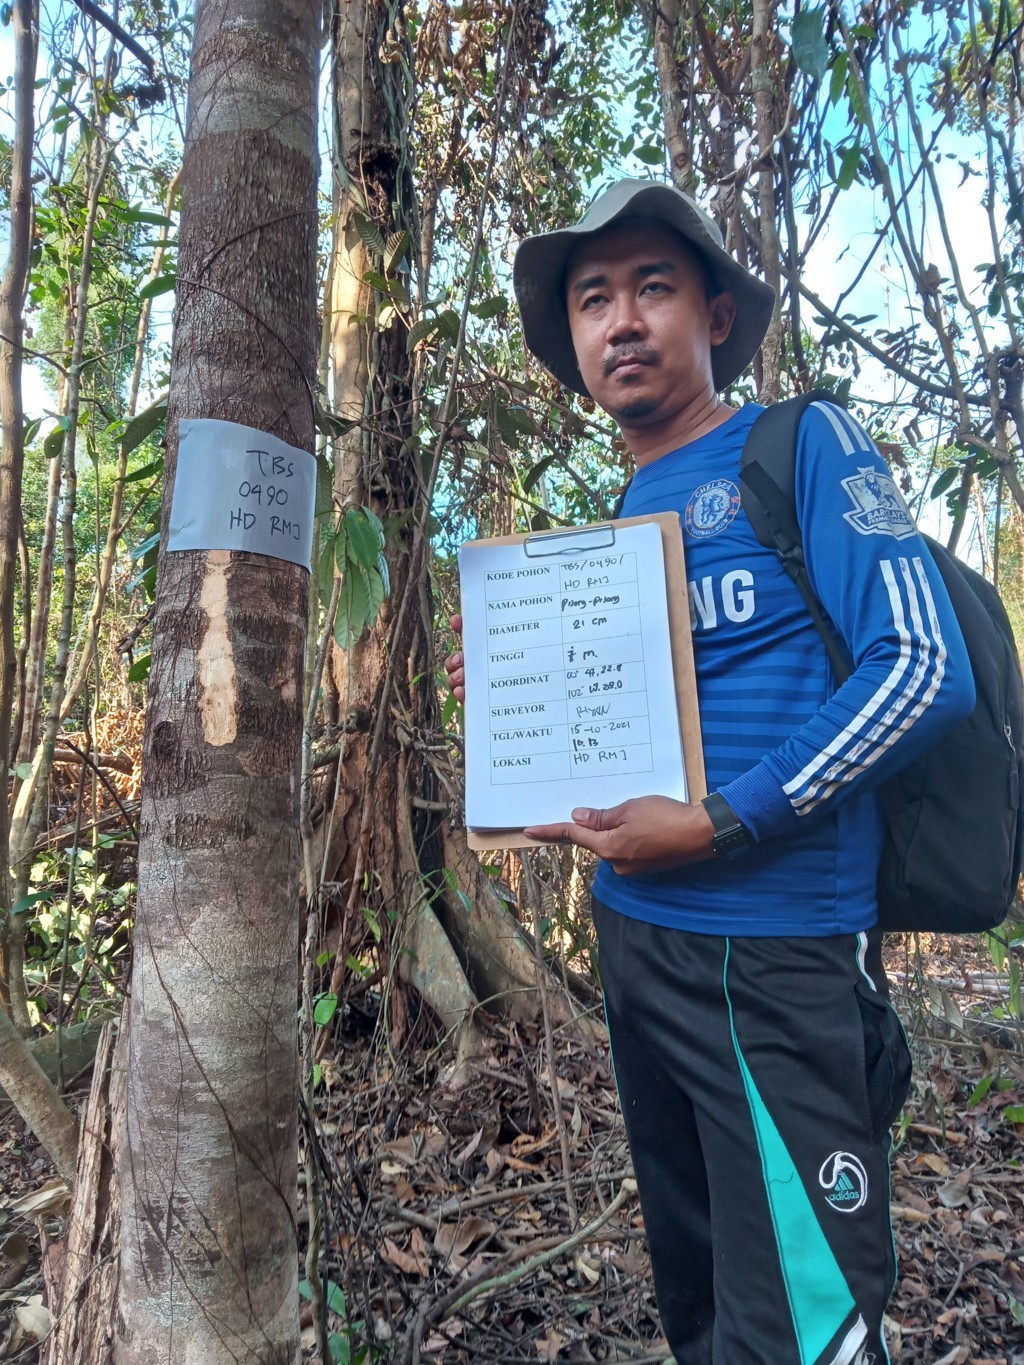 TBS
0490
HD RMJ
KODE POHON TBS/0490/
HD RMJ
NAMA POHON Pisang-Pisang
DIAMETER 21 cm
TINGGI m
KOORDINAT 00°
102°
SURVEYOR RIYAN
TGL/WAKTU 15-10-2021
10.13
LOKASI HD RMJ
CHELSEA
FOOTBALL CLUB
NG
BARCLAYS
PREMIER LEAGUE
adidas